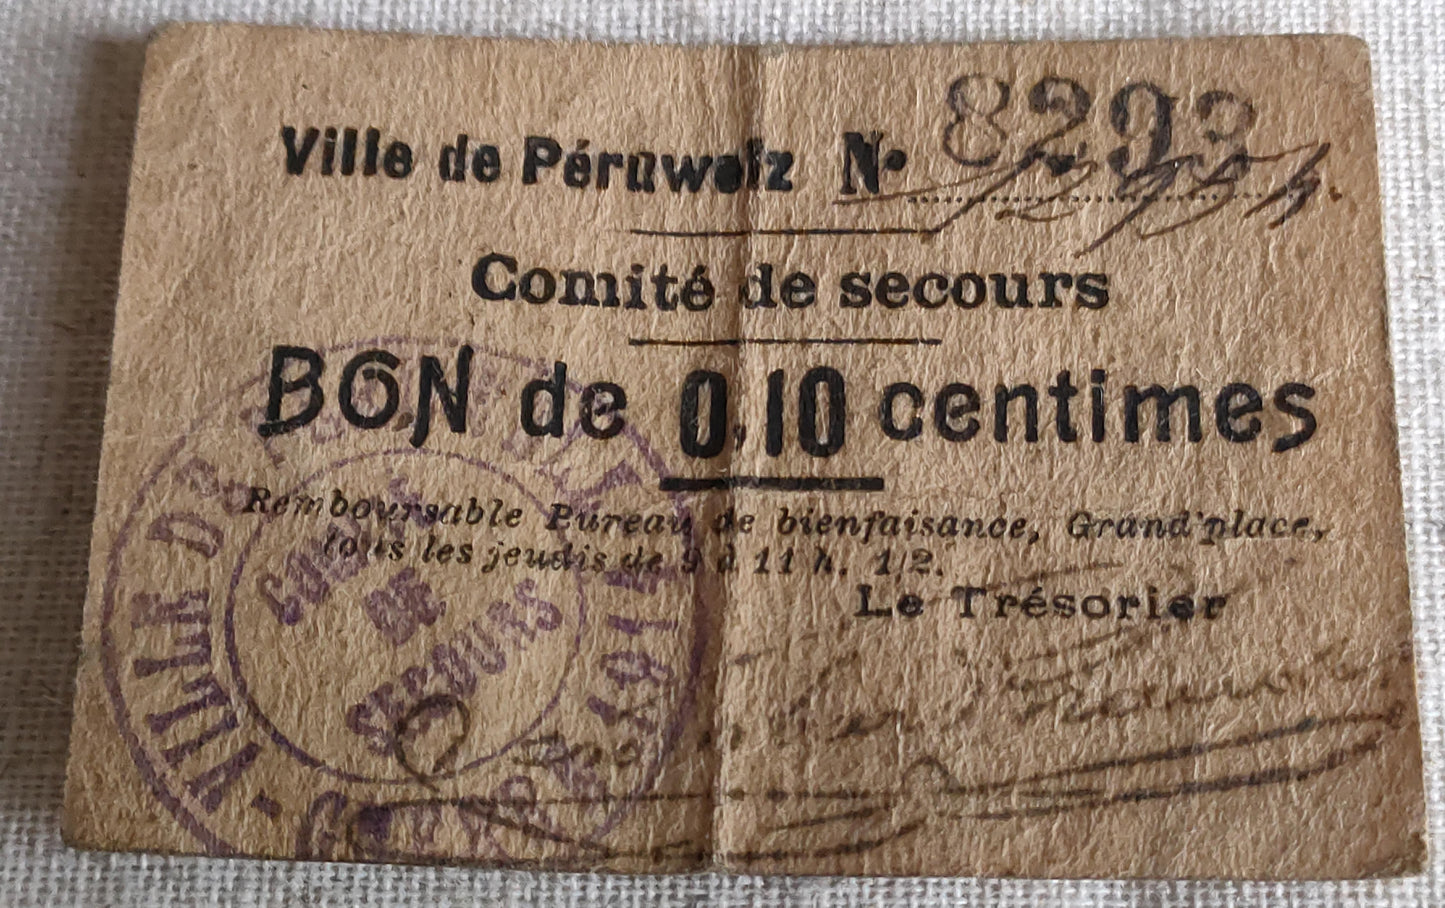 Ville de Péruwelz No. 8293
Comité de secours
BON de 0,10 centimes
Remboursable Bureau de bienfaisance, Grand'place,
tous les jeudis de 9 à 11 h. 1/2.
Le Trésorier
VILLE DE PERUWELZ
COMITÉ
DE
SECOURS